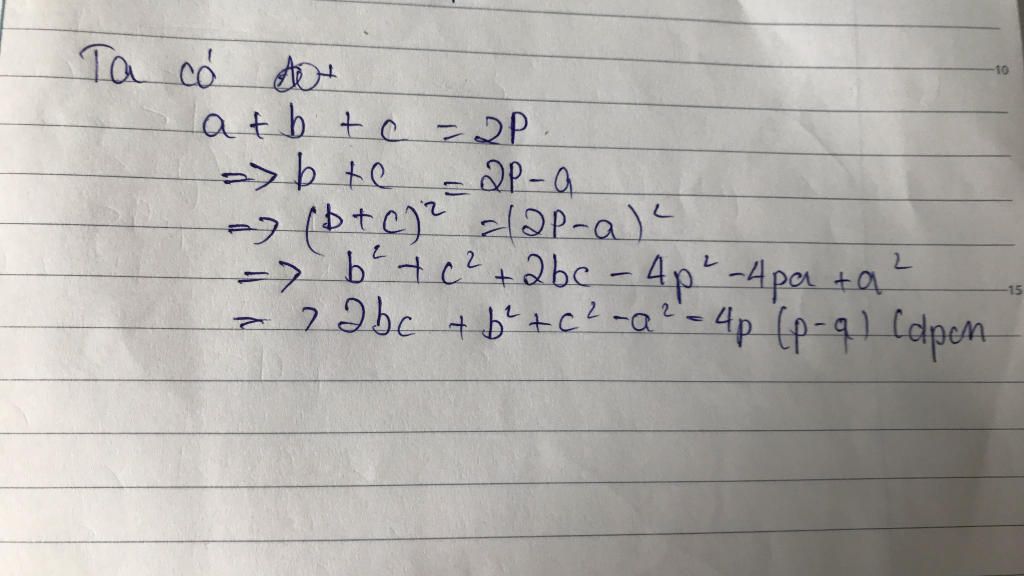 Ta có
a + b + c = 2P
=> b + c = 2P - a
=> (b + c)² = (2P - a)²
=> b² + c² + 2bc - 4p² - 4pa + a²
=> 2bc + b² + c² - a² - 4p (p - a) (dpcm
10
15